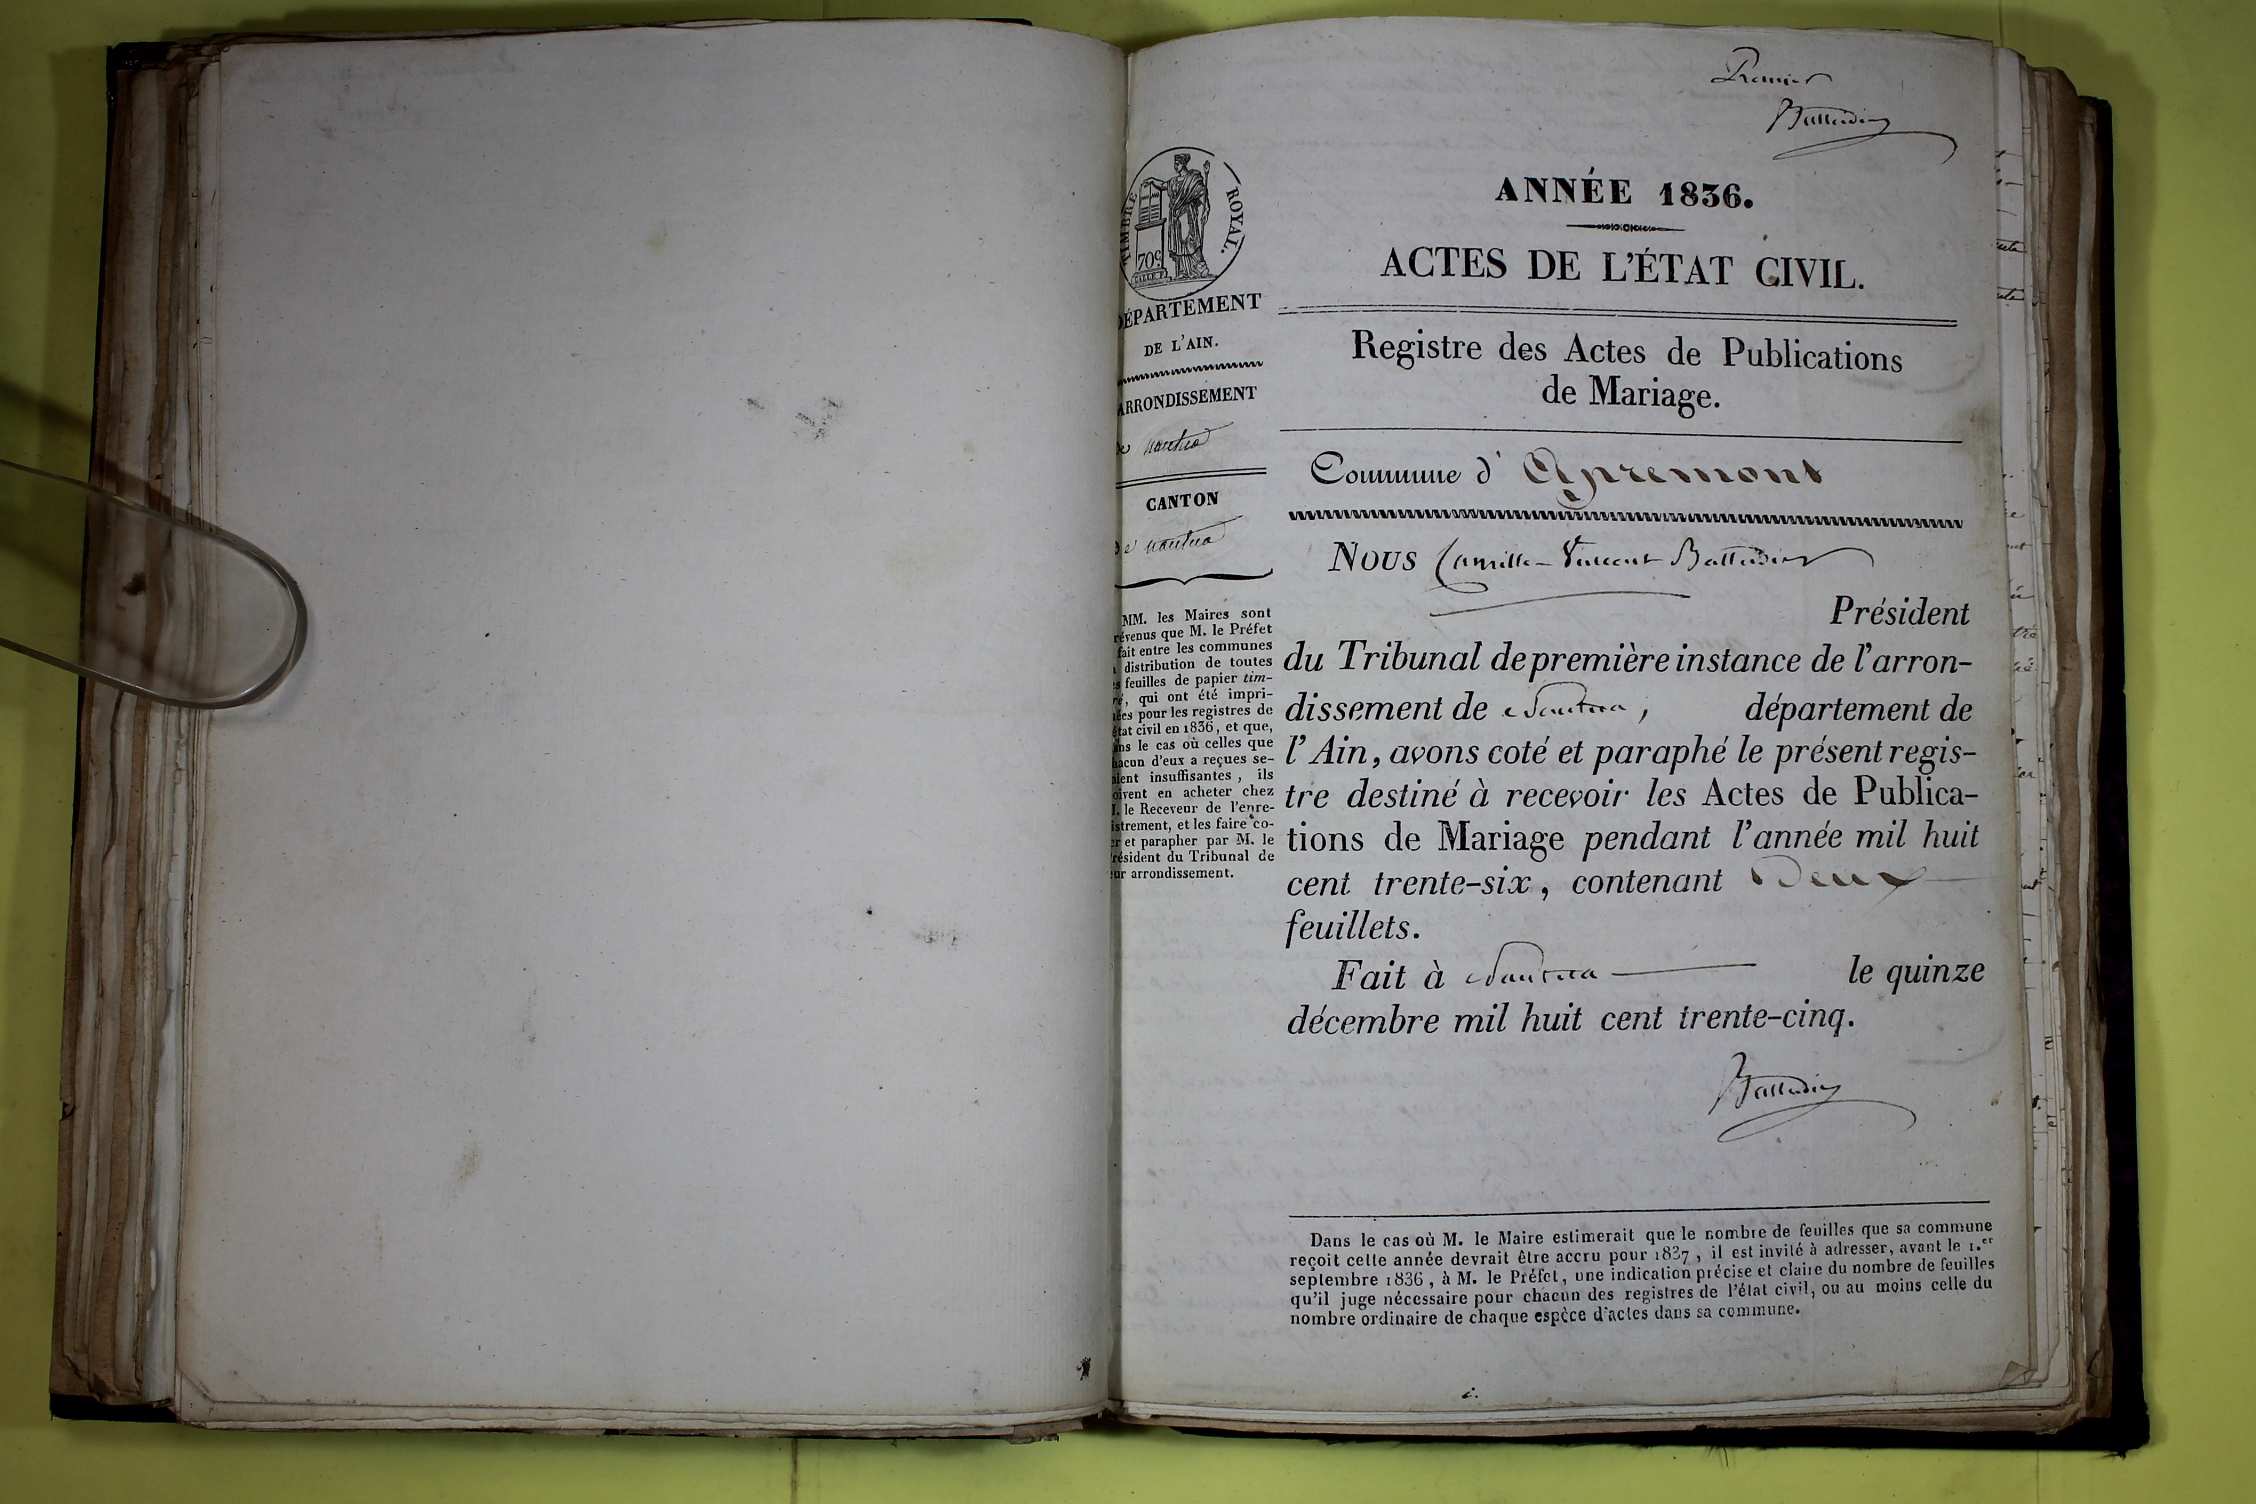 Premier
Battendier
TIMBRE ROYAL.
70c
ANNÉE 1836.
ACTES DE L'ÉTAT CIVIL.
Registre des Actes de Publications
de Mariage.
Commune d' Apremont
DÉPARTEMENT
DE L'AIN.
ARRONDISSEMENT
de nantua
CANTON
de nantua
MM. les Maires sont
révenus que M. le Préfet
fait entre les communes
distribution de toutes
s feuilles de papier tim-
ré, qui ont été impri-
ées pour les registres de
état civil en 1836, et que,
ans le cas où celles que
hacun d'eux a reçues se-
aient insuffisantes, ils
oivent en acheter chez
M. le Receveur de l'enre-
istrement, et les faire co-
er et parapher par M. le
résident du Tribunal de
ur arrondissement.
Nous Camille-Vincent Battendier
Président
du Tribunal de première instance de l'arron-
dissement de Nantua, département de
l'Ain, avons coté et paraphé le présent regis-
tre destiné à recevoir les Actes de Publica-
tions de Mariage pendant l'année mil huit
cent trente-six, contenant Deux
feuillets.
Fait à Nantua le quinze
décembre mil huit cent trente-cinq.
Battendier
Dans le cas où M. le Maire estimerait que le nombre de feuilles que sa commune
reçoit cette année devrait être accru pour 1837, il est invité à adresser, avant le 1.er
septembre 1836, à M. le Préfet, une indication précise et claire du nombre de feuilles
qu'il juge nécessaire pour chacun des registres de l'état civil, ou au moins celle du
nombre ordinaire de chaque espèce d'actes dans sa commune.